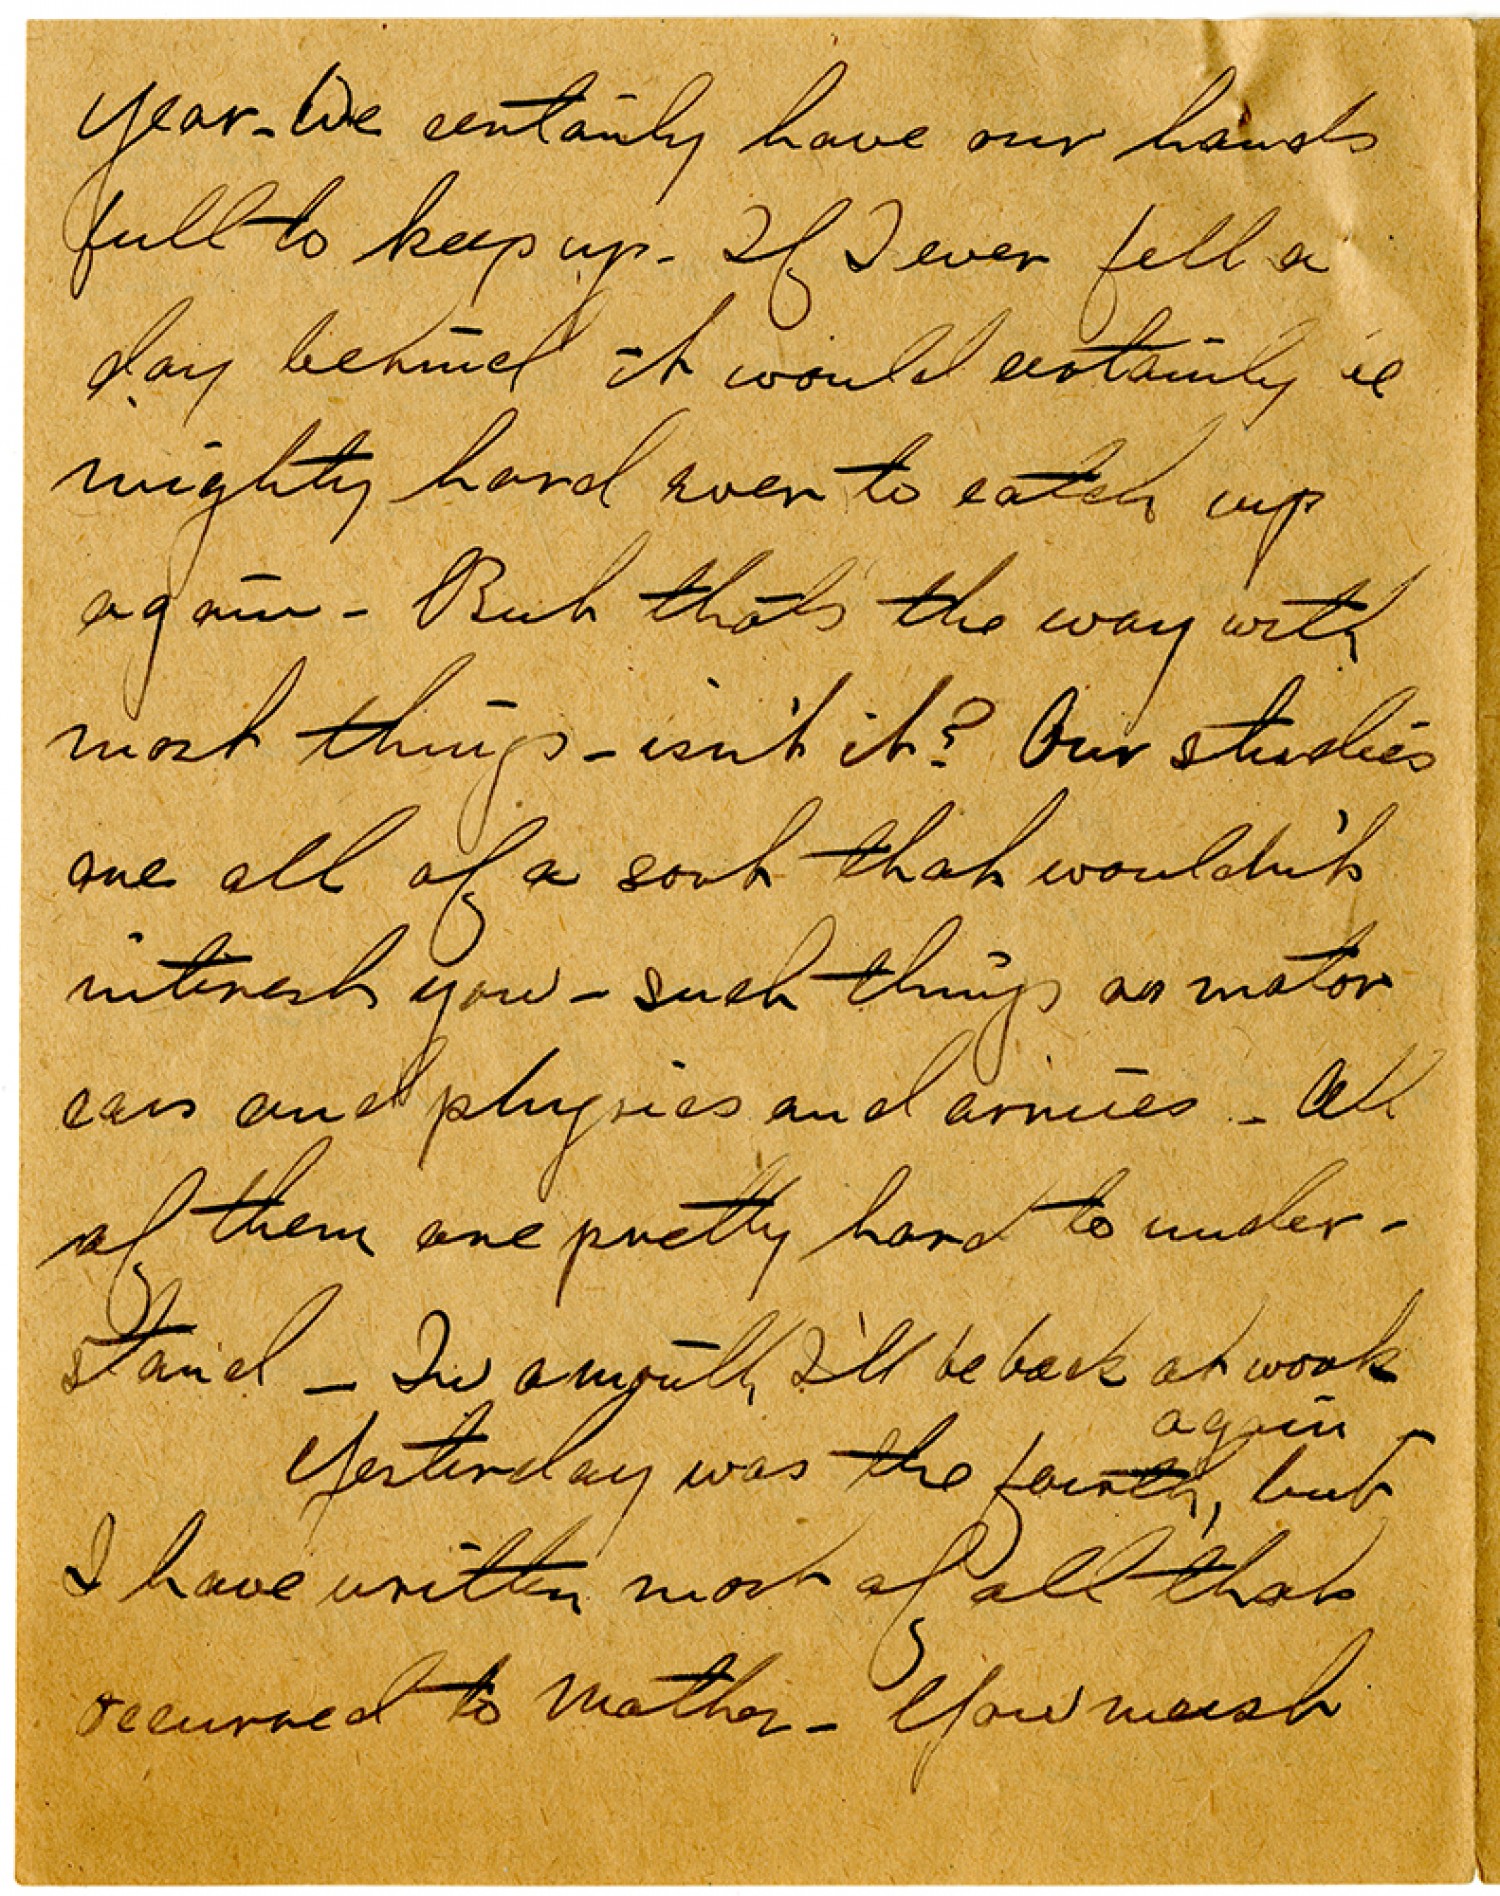 year - We certainly have our hands
full to keep up - If I ever fell a
day behind it would certainly be
mighty hard ever to catch up
again - But that's the way with
most things - isn't it? Our studies
are all of a sort that wouldn't
interest you - such things as motor
cars and physics and armies - All
of them are pretty hard to under-
stand - In a month I'll be back at work
again -
Yesterday was the fourth, but
I have written most of all that
occurred to Mother - You must